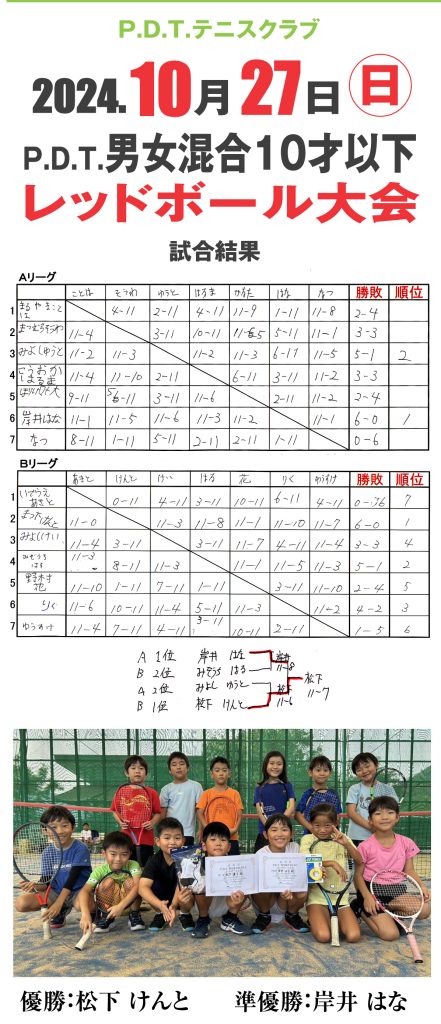 P.D.T.テニスクラブ
2024.10月27日 日
P.D.T.男女混合10才以下
レッドボール大会
試合結果
Aリーグ
ことは そうわ ゆうと はるま かなた はな なつ 勝敗 順位
1 4-11 2-11 4-11 11-9 1-11 11-8 2-4
2 11-4 3-11 10-11 5-11 11-1 3-3
3 みよしゆうと 11-2 11-3 11-2 11-3 6-11 11-5 5-1 2
4 11-4 11-10 2-11 6-11 3-11 11-2 3-3
5 9-11 3-11 11-6 2-11 11-2 2-4
6 岸井はな 11-1 11-5 11-6 11-3 11-2 11-1 6-0 1
7 なつ 8-11 1-11 5-11 2-11 2-11 1-11 0-6
Bリーグ
あさと けんと けい はる 花 りく ゆうすけ 勝敗 順位
1 0-11 4-11 3-11 10-11 6-11 4-11 7
2 11-0 11-3 11-8 11-1 11-10 11-7 6-0 1
3 みよしけい 11-4 3-11 3-11 11-7 4-11 11-4 3-3 4
4 みぞうちはる 11-3 8-11 11-3 11-1 11-5 11-3 5-1 2
5 野村花 11-10 1-11 7-11 1-11 3-11 11-10 2-4 5
6 りく 11-6 10-11 11-4 5-11 11-3 11-2 4-2 3
7 ゆうすけ 11-4 7-11 4-11 3-11 10-11 2-11 1-5 6
A 1位 岸井 はな 岸井
B 2位 みぞうち はる 11-8
A 2位 みよし ゆうと 松下
B 1位 松下 けんと 11-6
松下
11-7
優勝:松下 けんと 準優勝:岸井 はな